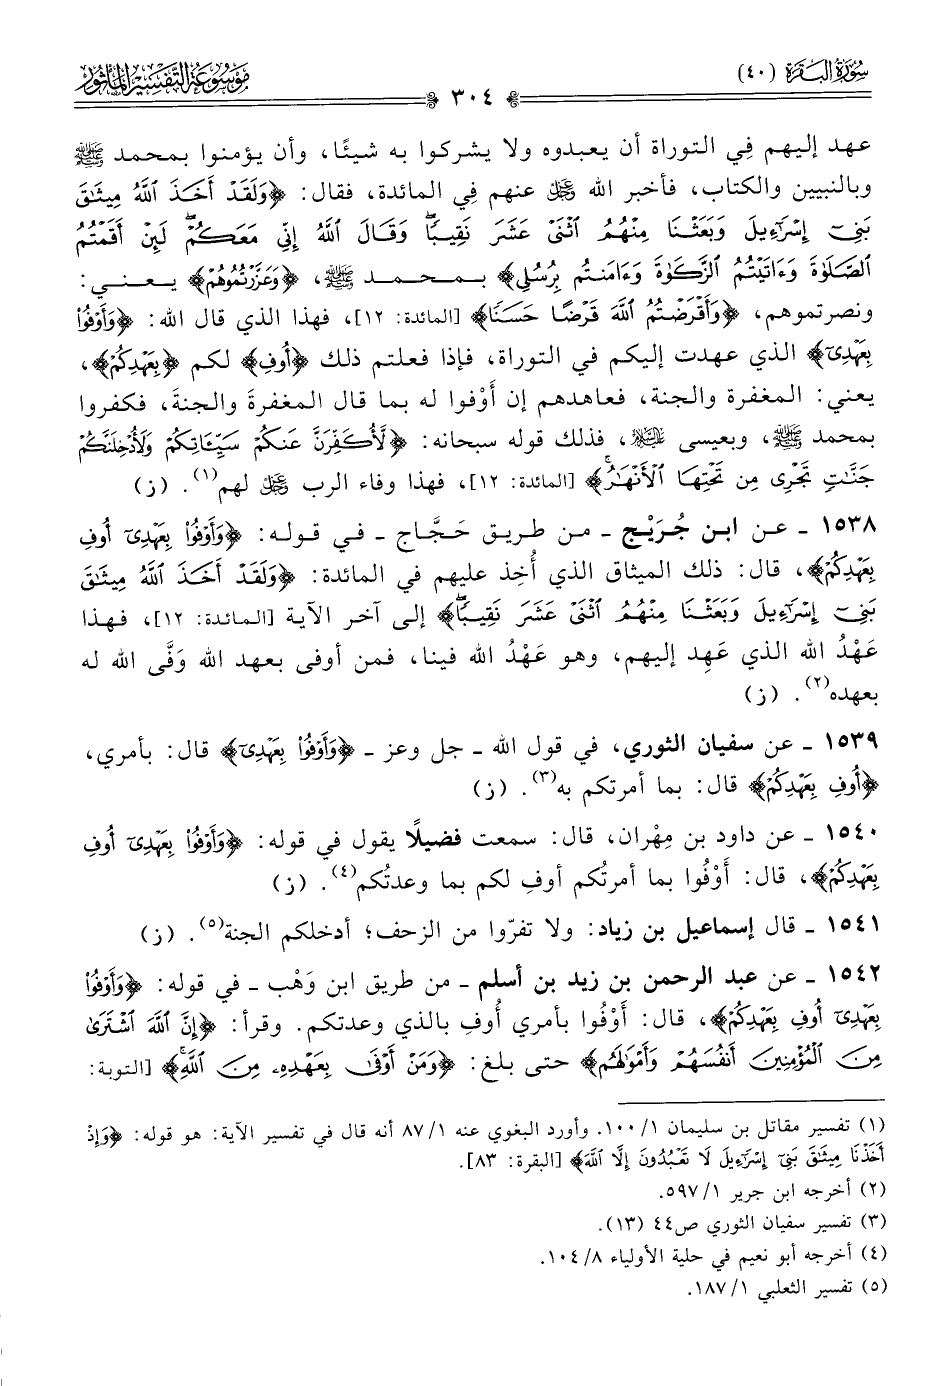 سُورَةُ البَقَرَة (٤٠)
٣٠٤
مَوْسُوعَةُ التَّفْسِيْرُ المَأْثُور
عهد إليهم فِي التوراة أن يعبدوه ولا يشركوا به شيئًا، وأن يؤمنوا بمحمد ﷺ
وبالنبيين والكتاب، فأخبر الله ﷿ عنهم فِي المائدة، فقال: ﴿وَلَقَدْ أَخَذَ ٱللَّهُ مِيثَٰقَ
بَنِىٓ إِسْرَٰٓءِيلَ وَبَعَثْنَا مِنْهُمُ ٱثْنَىْ عَشَرَ نَقِيبًا ۖ وَقَالَ ٱللَّهُ إِنِّى مَعَكُمْ ۖ لَئِنْ أَقَمْتُمُ
ٱلصَّلَوٰةَ وَءَاتَيْتُمُ ٱلزَّكَوٰةَ وَءَامَنتُم بِرُسُلِى﴾ بمحمد ﷺ، ﴿وَعَزَّرْتُمُوهُمْ﴾ يعني:
ونصرتموهم، ﴿وَأَقْرَضْتُمُ ٱللَّهَ قَرْضًا حَسَنًا﴾ [المائدة: ١٢]، فهذا الذي قال الله: ﴿وَأَوْفُوا۟
بِعَهْدِىٓ﴾ الذي عهدت إليكم في التوراة، فإذا فعلتم ذلك ﴿أُوفِ﴾ لكم ﴿بِعَهْدِكُمْ﴾،
يعني: المغفرة والجنة، فعاهدهم إن أَوْفوا له بما قال المغفرةَ والجنةَ، فكفروا
بمحمد ﷺ، وبعيسى ﵇، فذلك قوله سبحانه: ﴿لَّأُكَفِّرَنَّ عَنكُمْ سَيِّـَٔاتِكُمْ وَلَأُدْخِلَنَّكُمْ
جَنَّٰتٍ تَجْرِى مِن تَحْتِهَا ٱلْأَنْهَٰرُ ۚ﴾ [المائدة: ١٢]، فهذا وفاء الرب ﷿ لهم(١). (ز)
١٥٣٨ ـ عن ابن جُرَيْج ـ من طريق حَجَّاج ـ في قوله: ﴿وَأَوْفُوا۟ بِعَهْدِىٓ أُوفِ
بِعَهْدِكُمْ﴾، قال: ذلك الميثاق الذي أُخِذ عليهم في المائدة: ﴿وَلَقَدْ أَخَذَ ٱللَّهُ مِيثَٰقَ
بَنِىٓ إِسْرَٰٓءِيلَ وَبَعَثْنَا مِنْهُمُ ٱثْنَىْ عَشَرَ نَقِيبًا ۖ﴾ إلى آخر الآية [المائدة: ١٢]، فهذا
عَهْدُ الله الذي عَهِد إليهم، وهو عَهْدُ الله فينا، فمن أوفى بعهد الله وَفَّى الله له
بعهده(٢). (ز)
١٥٣٩ ـ عن سفيان الثوري، في قول الله ـ جل وعز ـ ﴿وَأَوْفُوا۟ بِعَهْدِىٓ﴾ قال: بأمري،
﴿أُوفِ بِعَهْدِكُمْ﴾ قال: بما أمرتكم به(٣). (ز)
١٥٤٠ ـ عن داود بن مِهْران، قال: سمعت فضيلًا يقول في قوله: ﴿وَأَوْفُوا۟ بِعَهْدِىٓ أُوفِ
بِعَهْدِكُمْ﴾، قال: أَوْفُوا بما أمرتُكم أوفِ لكم بما وعدتُكم(٤). (ز)
١٥٤١ ـ قال إسماعيل بن زياد: ولا تفرّوا من الزحف؛ أدخلكم الجنة(٥). (ز)
١٥٤٢ ـ عن عبد الرحمن بن زيد بن أسلم ـ من طريق ابن وَهْب ـ في قوله: ﴿وَأَوْفُوا۟
بِعَهْدِىٓ أُوفِ بِعَهْدِكُمْ﴾، قال: أَوْفُوا بأمري أُوفِ بالذي وعدتكم. وقرأ: ﴿إِنَّ ٱللَّهَ ٱشْتَرَىٰ
مِنَ ٱلْمُؤْمِنِينَ أَنفُسَهُمْ وَأَمْوَٰلَهُم﴾ حتى بلغ: ﴿وَمَنْ أَوْفَىٰ بِعَهْدِهِۦ مِنَ ٱللَّهِ ۚ﴾ [التوبة:
(١) تفسير مقاتل بن سليمان ١/ ١٠٠. وأورد البغوي عنه ١/ ٨٧ أنه قال في تفسير الآية: هو قوله: ﴿وَإِذْ
أَخَذْنَا مِيثَٰقَ بَنِىٓ إِسْرَٰٓءِيلَ لَا تَعْبُدُونَ إِلَّا ٱللَّهَ﴾ [البقرة: ٨٣].
(٢) أخرجه ابن جرير ١/ ٥٩٧.
(٣) تفسير سفيان الثوري ص٤٤ (١٣).
(٤) أخرجه أبو نعيم في حلية الأولياء ٨/ ١٠٤.
(٥) تفسير الثعلبي ١/ ١٨٧.